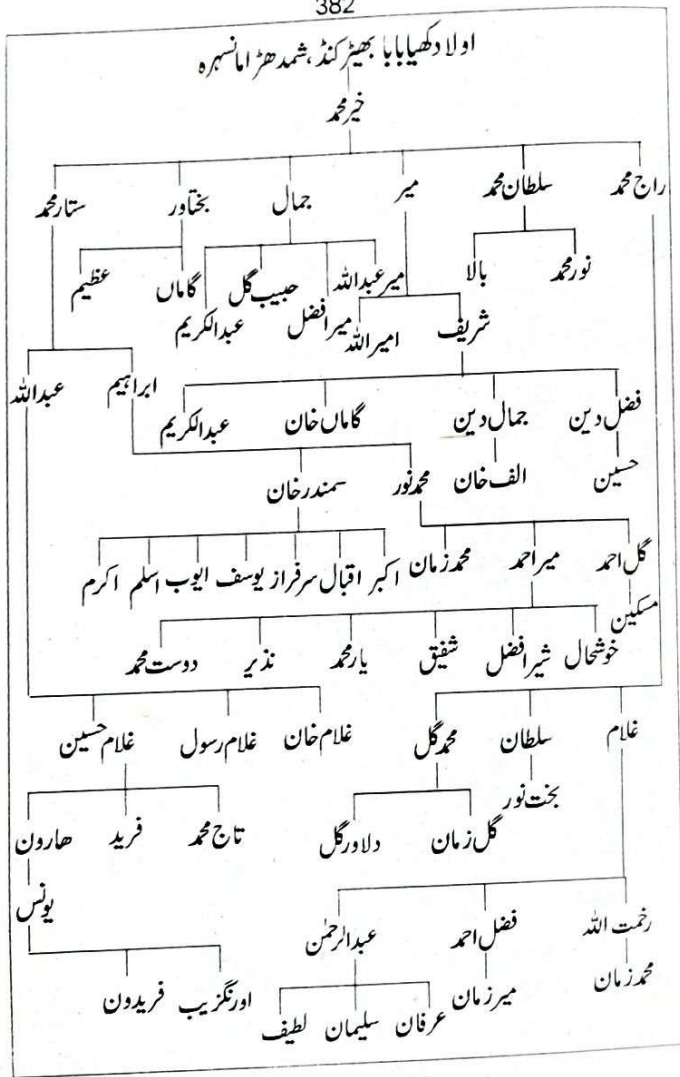 382
اولاد کھیابابا بھیڑکنڈ، شمدھڑا مانسہرہ
خیر محمد
راج محمد سلطان محمد میر جمال بختاور ستار محمد
نور محمد بالا میر عبداللہ میر افضل حبیب گل عبدالکریم گاماں عظیم
شریف امیر اللہ
ابراہیم عبداللہ
فضل دین جمال دین گاماں خان عبدالکریم
حسین الف خان محمد نور سمندر خان
گل احمد میر احمد محمد زمان اکبر اقبال سرفراز یوسف ایوب اسلم اکرم
مسکین
خوشحال شیر افضل شفیق یار محمد نذیر دوست محمد
غلام سلطان محمد گل غلام خان غلام رسول غلام حسین
بخت نور
گل زمان دلاور گل تاج محمد فرید ھارون
یونس
رخمت اللہ فضل احمد عبدالرحمٰن
محمد زمان میر زمان عرفان سلیمان لطیف
اورنگزیب فریدون